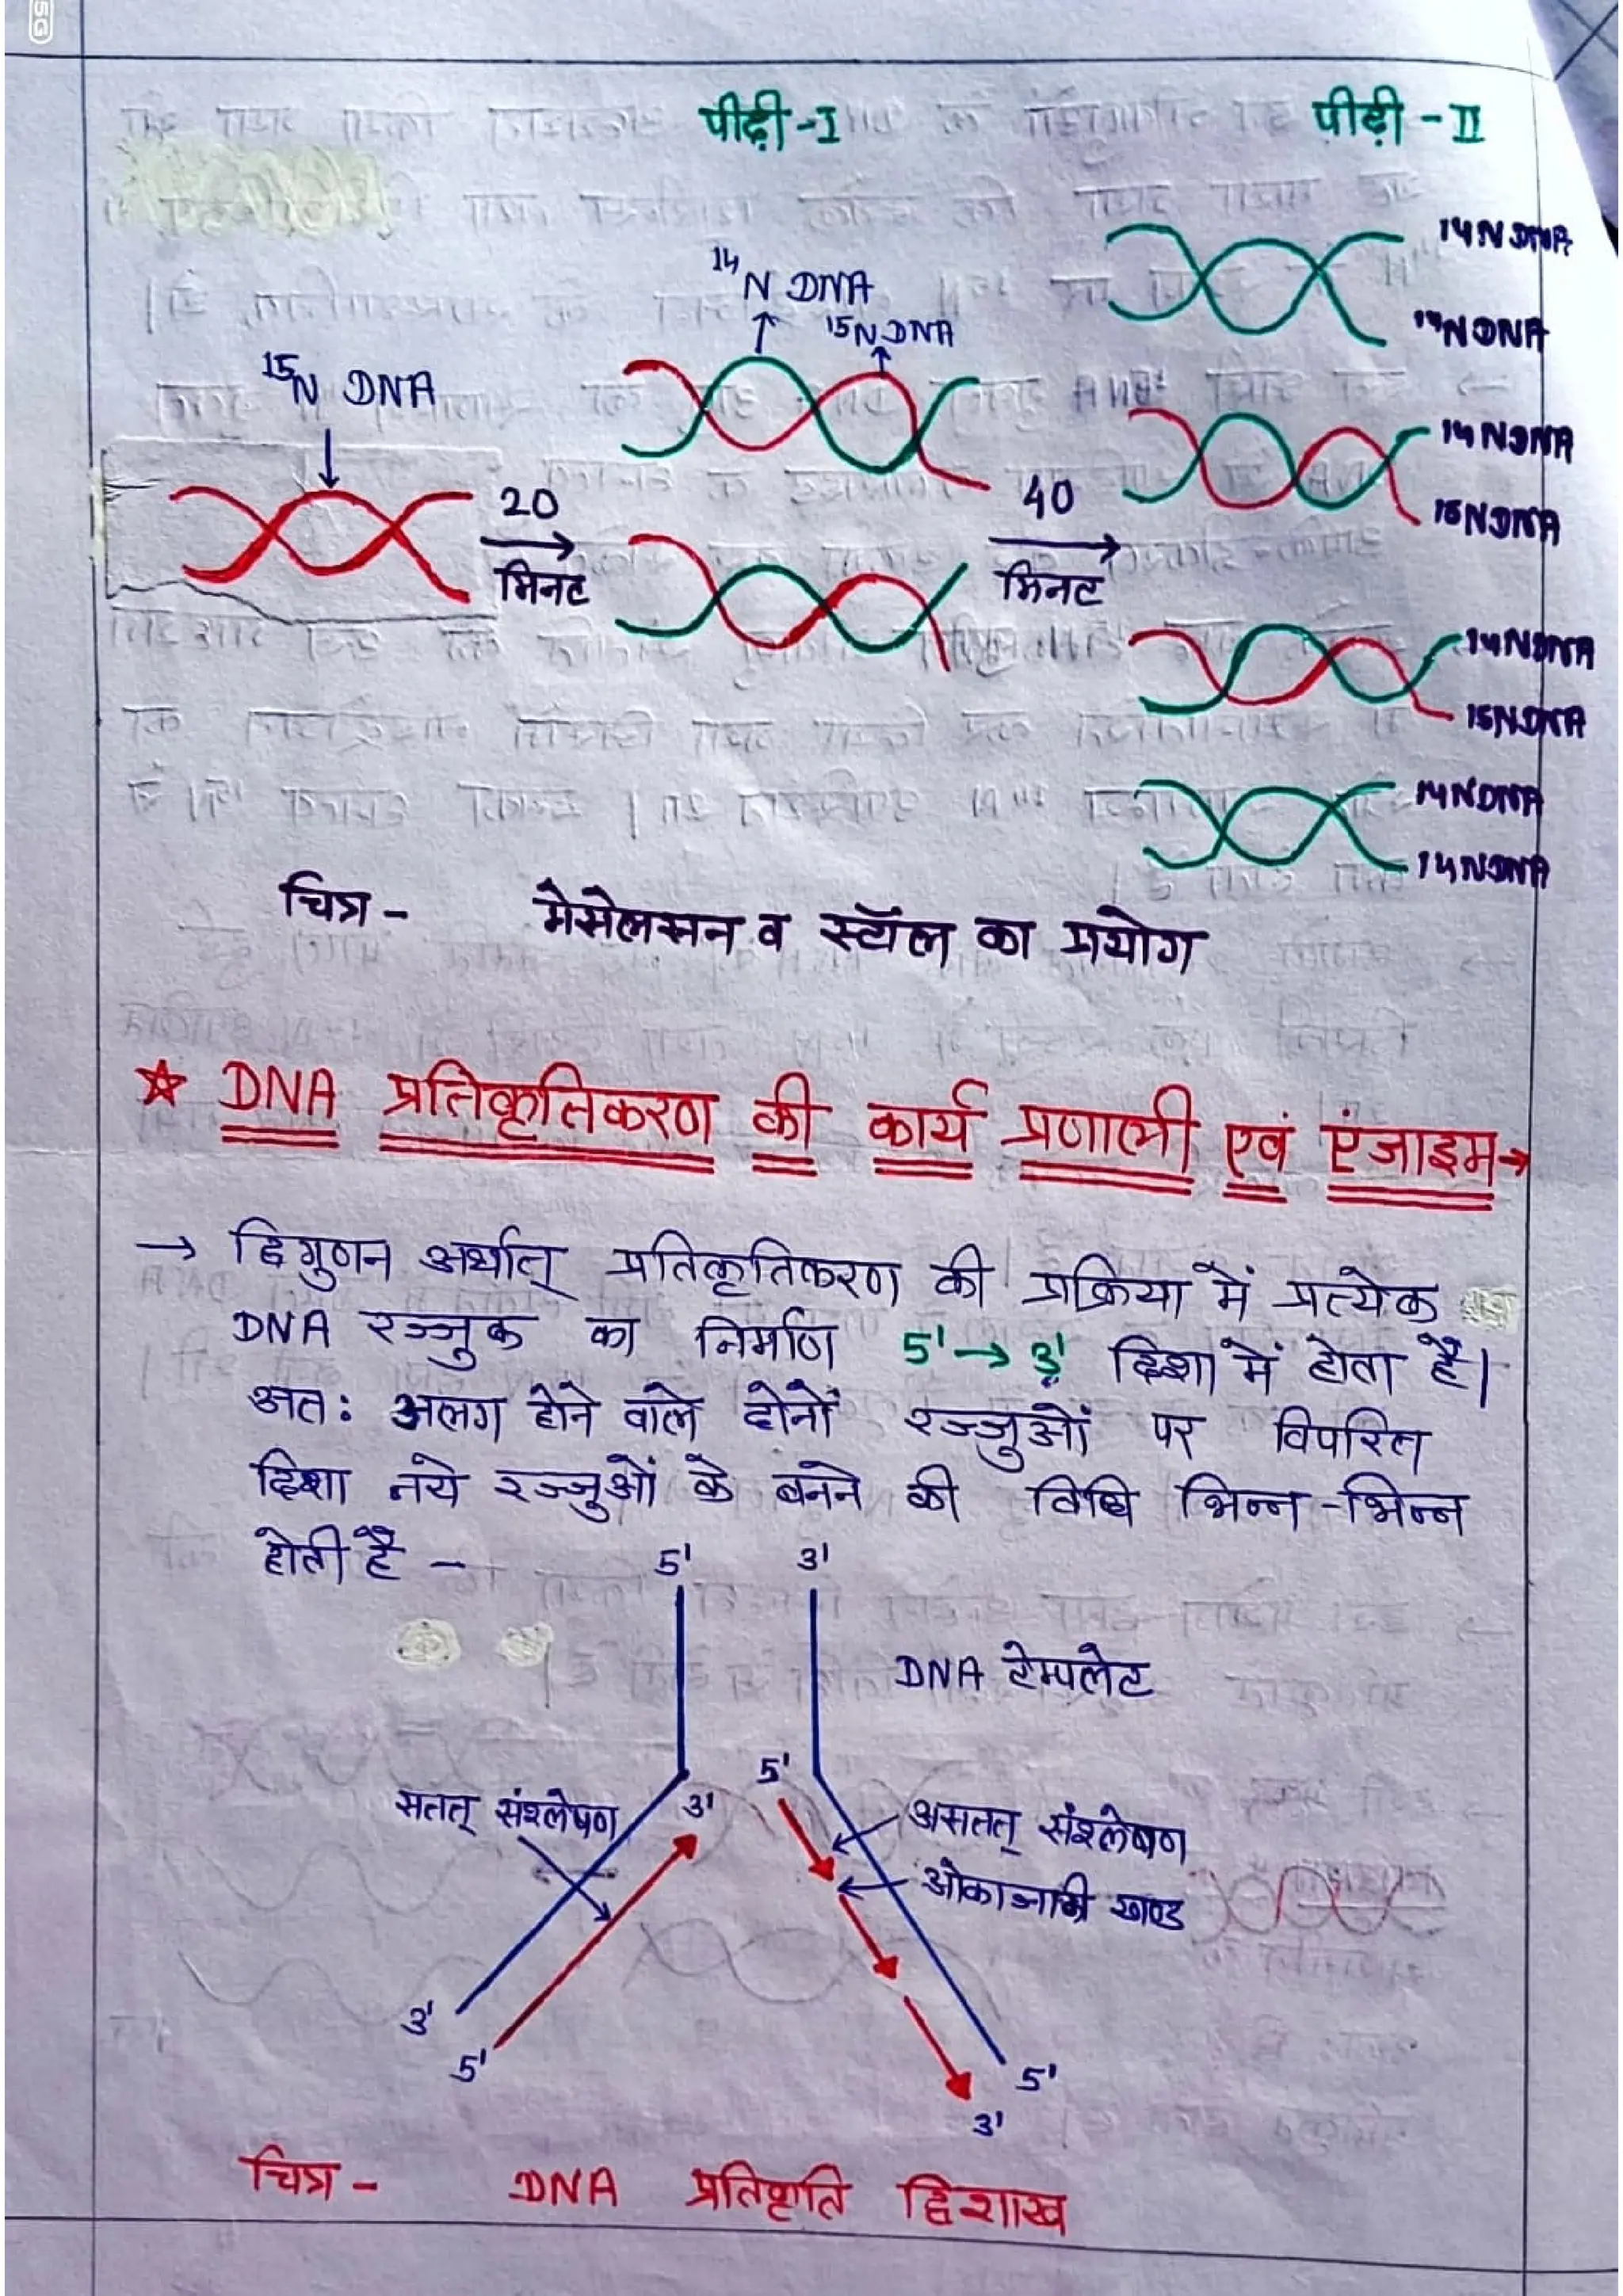 5G
पीढ़ी -I पीढ़ी - II
14N DNA
14N DNA
14N DNA
15N DNA
15N DNA
14N DNA
20 मिनट
40 मिनट
14N DNA
15N DNA
14N DNA
15N DNA
14N DNA
14N DNA
चित्र - मेसेलसन व स्टॉल का प्रयोग
☆ DNA प्रतिकृतिकरण की कार्य प्रणाली एवं एंजाइम→
→ द्विगुणन अर्थात् प्रतिकृतिकरण की प्रक्रिया में प्रत्येक
DNA रज्जुक का निर्माण 5'→3' दिशा में होता है।
अतः अलग होने वाले दोनों रज्जुओं पर विपरित
दिशा नये रज्जुओं के बनने की विधि भिन्न-भिन्न
होती है -
5' 3'
DNA टेम्पलेट
5'
सतत् संश्लेषण 3' असतत् संश्लेषण
ओकाजाकी खण्ड
3'
5' 5'
3'
चित्र - DNA प्रतिकृति द्विशाख